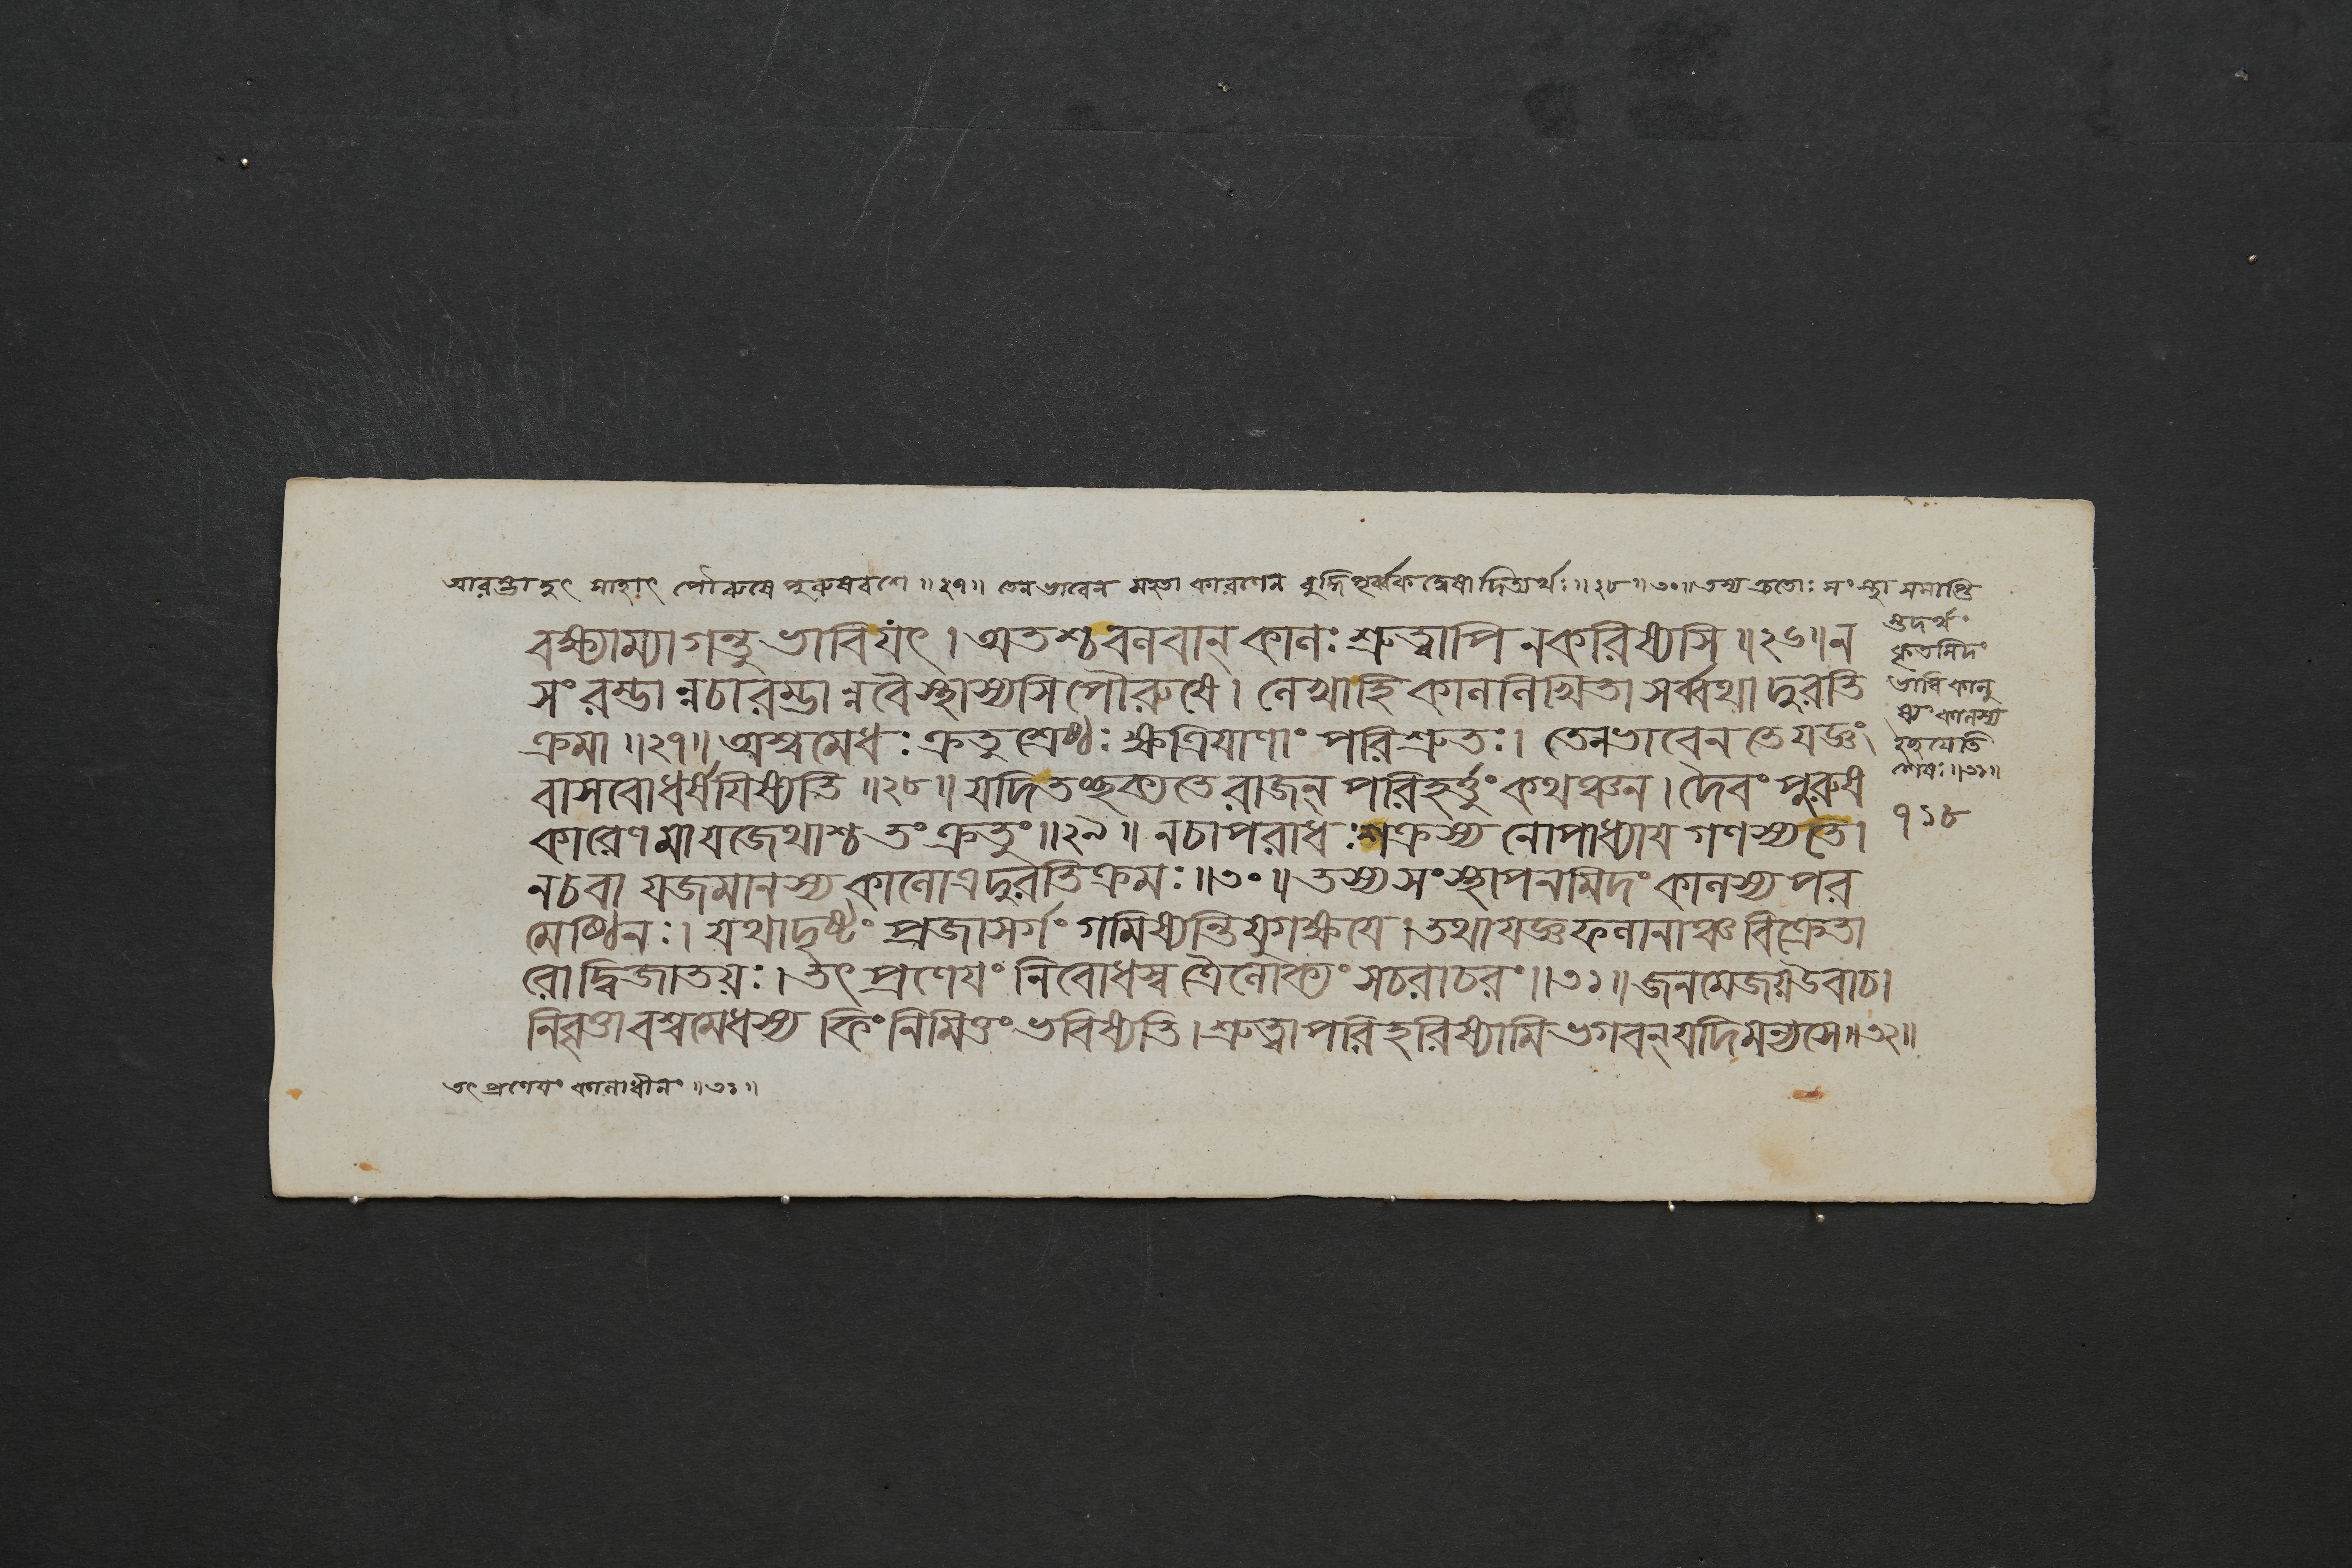 আরম্ভাদ্ভুৎ সাহাৎ পৌরুষে পুরুষবশে ॥২৭॥ তেন ভাবেন মহতা কারণেন বুদ্ধিপূর্ব্বক দ্বেষাদিত্যর্থঃ॥২৮॥৩০॥ তস্য ক্রতোঃ সংস্থা সমাপ্তি
স্তদর্থং
কৃতমিদং
ভাবি কালু
ষ্যং কালস্য
হেতুর্যেতি
শেষঃ॥৩১॥
বক্ষ্যাম্যাগন্তু ভাবি যৎ। অতশ্চ বলবান্ কালঃ শ্রুত্বাপি ন করিষ্যসি ॥২৬॥ ন
সংরম্ভান্নচারম্ভান্নবৈ স্থাস্যসি পৌরুষে। লেখাহি কাললিখিতা সর্ব্বথা দুরতি
ক্রমা ॥২৭॥ অশ্বমেধঃ ক্রতু শ্রেষ্ঠঃ ক্ষত্রিয়াণাং পরিশ্রুতঃ। তেন ভাবেন তে যজ্ঞং
বাসবো ধর্ষয়িষ্যতি ॥২৮॥ যদি তচ্ছক্যতে রাজন্ পরিহর্ত্তুং কথঞ্চন। দৈবং পুরুষ
কারেণ মা যজেথাশ্চ তং ক্রতুং ॥২৯॥ ন চাপরাধঃ শক্রস্য নোপাধ্যায় গণস্য তে।
ন চ বা যজমানস্য কালোএ দুরতিক্রমঃ ॥৩০॥ তস্য সংস্থাপনমিদং কালস্য পর
মেষ্ঠিনঃ। যথাদৃষ্টং প্রজাসর্গং গমিষ্যন্তি যুগক্ষয়ে। তথা যজ্ঞ ফলানাঞ্চ বিক্রেতা
রো দ্বিজাতয়ঃ। তৎ প্রণেয়ং নিবোধস্ব ত্রৈলোক্যং সচরাচরং ॥৩১॥ জনমেজয় উবাচ।
নিবৃত্তাবশ্বমেধস্য কিং নিমিত্তং ভবিষ্যতি। শ্রুত্বা পরিহরিষ্যামি ভগবন্ যদি মন্যসে॥৩২॥
৭১৮
তৎ প্রণেয়ং কালাধীনং ॥৩১॥